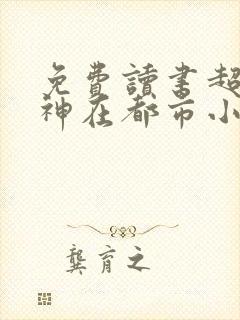 免費讀書超
神在都市小
龔育之